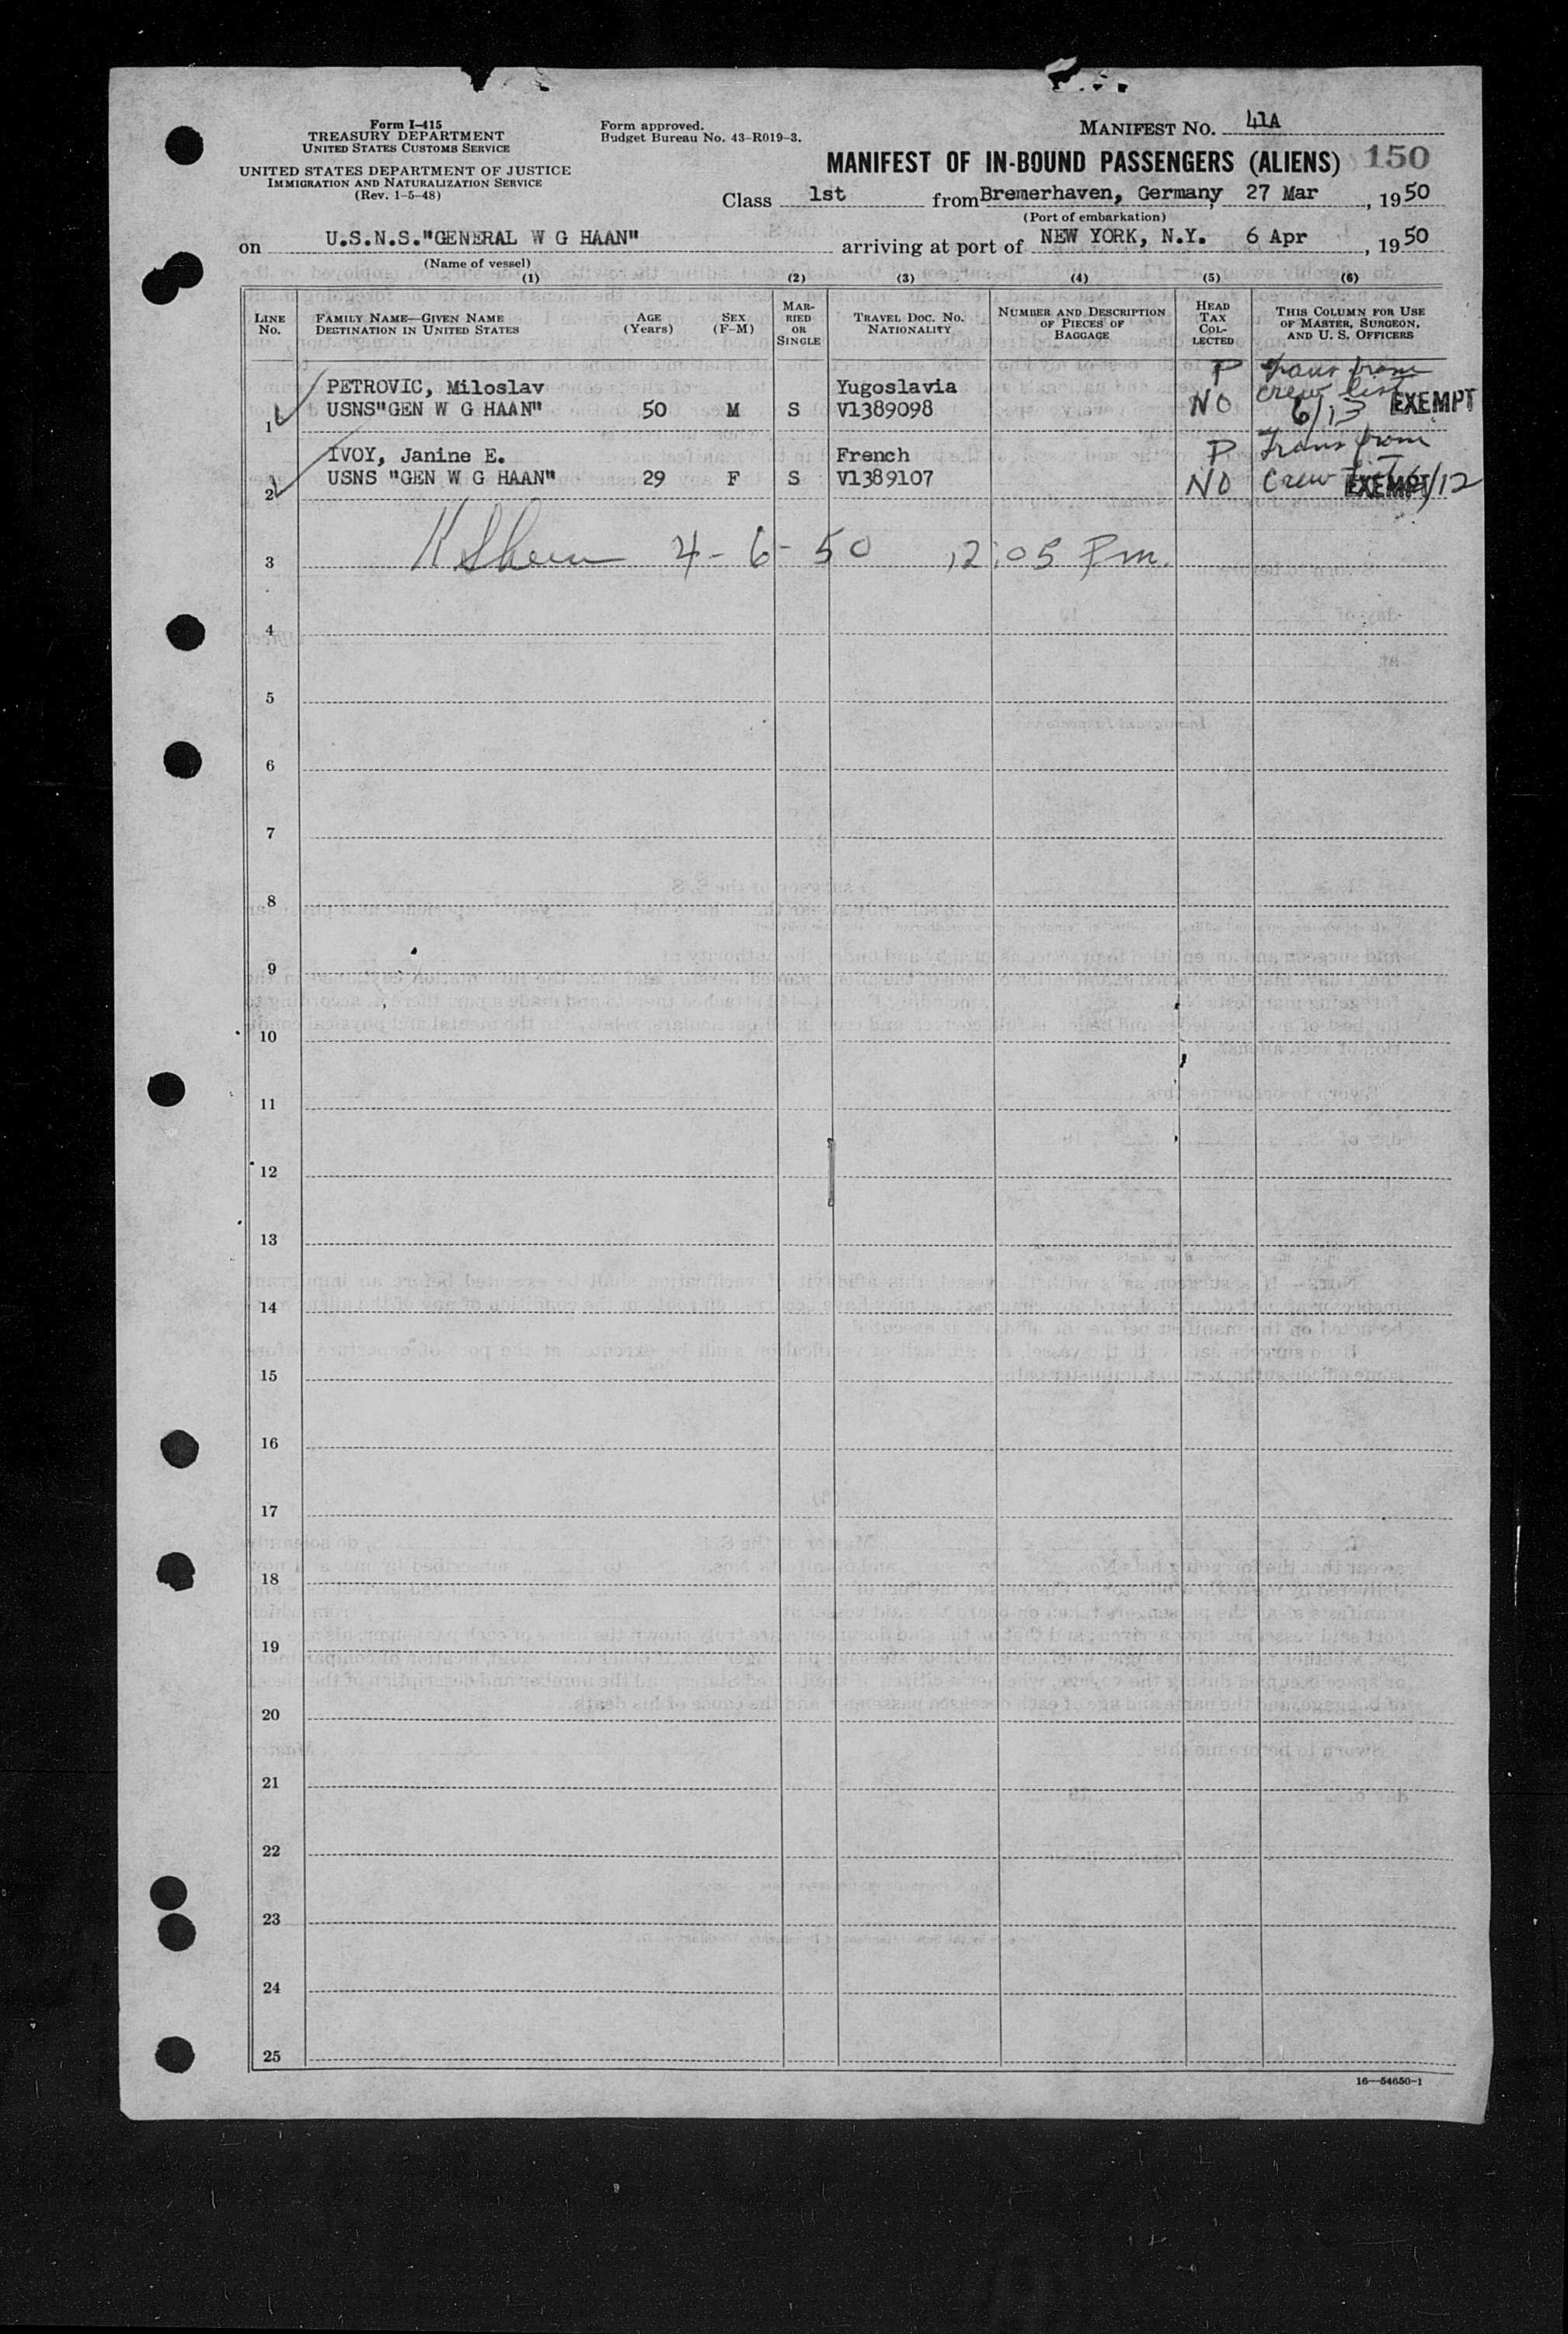 Form I-415
TREASURY DEPARTMENT
UNITED STATES CUSTOMS SERVICE
UNITED STATES DEPARTMENT OF JUSTICE
IMMIGRATION AND NATURALIZATION SERVICE
(Rev. 1-5-48)
Form approved.
Budget Bureau No. 43-R019-3.
MANIFEST NO. 41A
MANIFEST OF IN-BOUND PASSENGERS (ALIENS) 150
Class 1st from Bremerhaven, Germany 27 Mar, 1950
(Port of embarkation)
on U.S.N.S."GENERAL W G HAAN" arriving at port of NEW YORK, N.Y. 6 Apr, 1950
(Name of vessel)
(1) (2) (3) (4) (5) (6)
LINE No. FAMILY NAME—GIVEN NAME DESTINATION IN UNITED STATES AGE (Years) SEX (F-M) MARRIED OR SINGLE TRAVEL DOC. NO. NATIONALITY NUMBER AND DESCRIPTION OF PIECES OF BAGGAGE HEAD TAX COLLECTED THIS COLUMN FOR USE OF MASTER, SURGEON, AND U. S. OFFICERS
PETROVIC, Miloslav Yugoslavia P Trans from
1 USNS"GEN W G HAAN" 50 M S V1389098 NO crew list 6/13 EXEMPT
IVOY, Janine E. French P Trans from
2 USNS "GEN W G HAAN" 29 F S V1389107 NO Crew EXEMPT /12
3 4-6-50 12:05 Pm.
4
5
6
7
8
9
10
11
12
13
14
15
16
17
18
19
20
21
22
23
24
25
16—54650-1